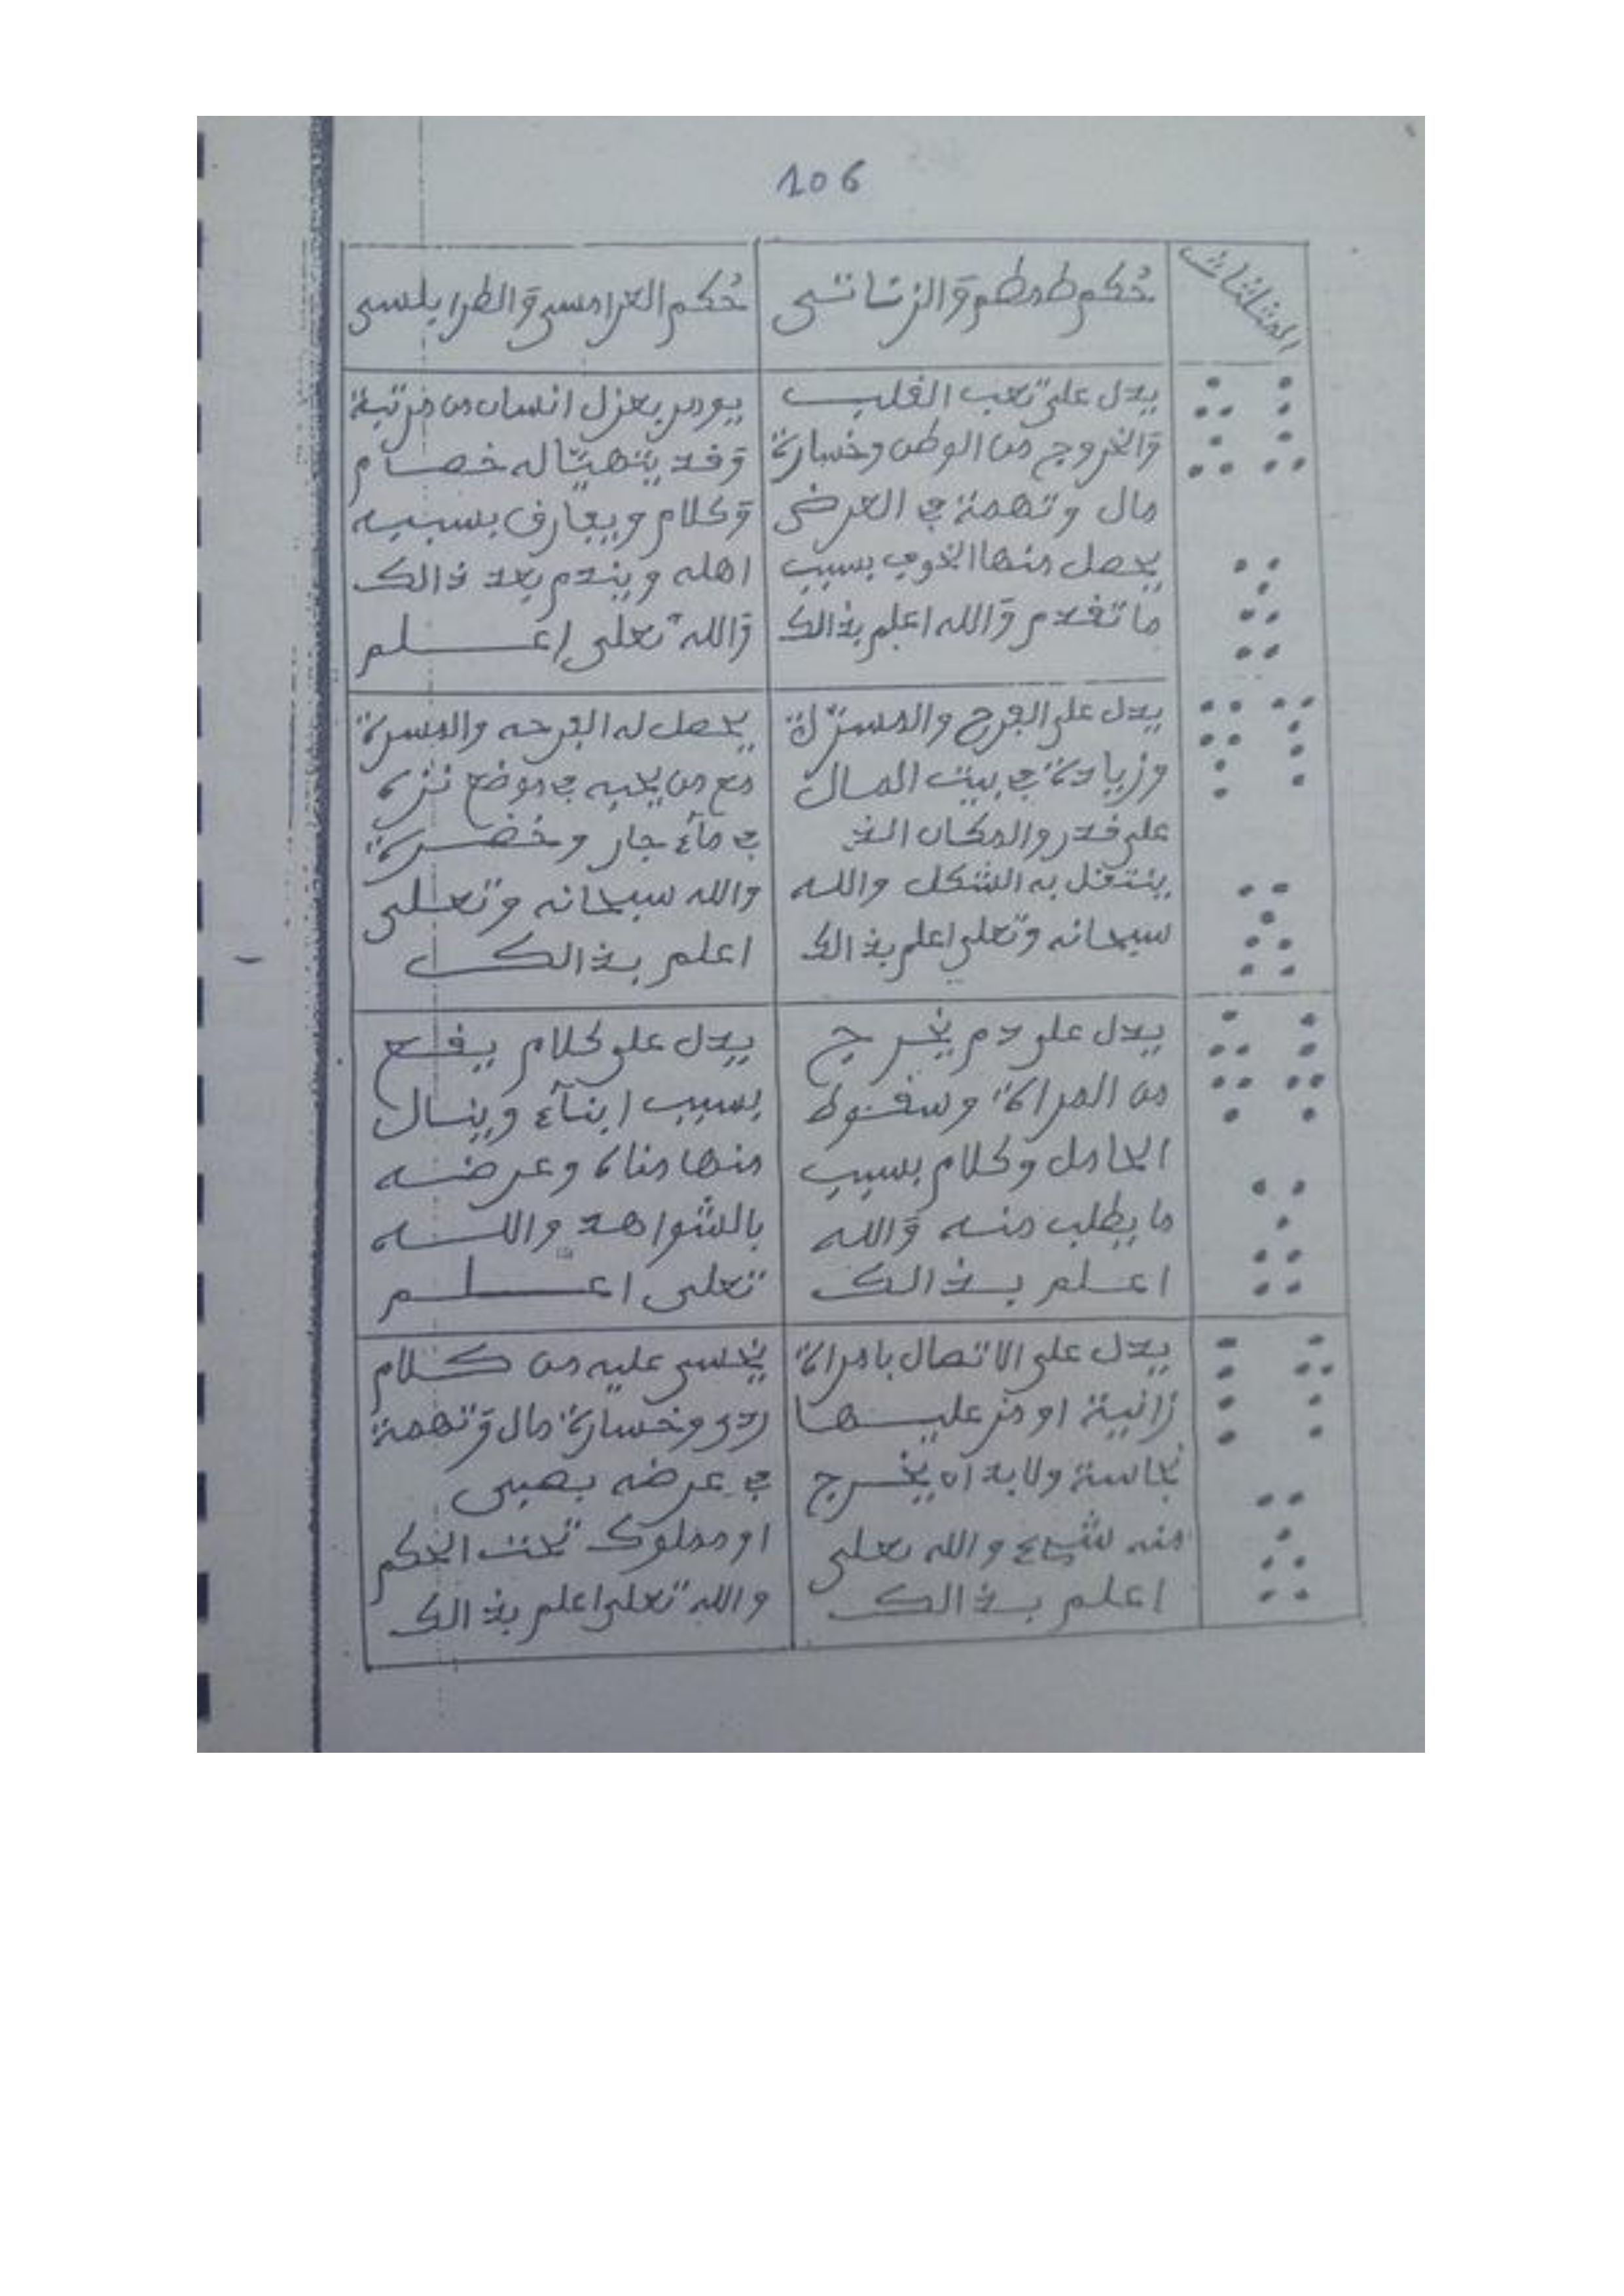 106
المثلثات
حُكم طمطم وَالزناتى
حُكم العرامسى وَالطرابلسى
يدل على تعب القلب
وَالخروج من الوطن وخسارة
مال وتهمة في العرض
يحصل منها الخوف بسبب
ما تقدم وَالله اعلم بذالك
يومر بعزل انسان من مرتبة
وَقد يتهيّا له خصام
وَكلام ويعارف بسببه
اهله ويندم بعد ذالك
وَالله تعلى اعلم
يدل على الفرح والمسرّة
وزيادة في بيت المال
على قدر والمكان الذ
ينتقل به الشكل والله
سبحانه وتعلى اعلم بذالك
يحصل له الفرحه والمسرة
مع من يحبه في موضع نزه
في مآء جار وخضرة
والله سبحانه وتعلى
اعلم بذالك
يدل على دم يخرج
من المراة وسقوط
الحامل وكلام بسبب
ما يطلب منه وَالله
اعلم بذالك
يدل على كلام يقع
بسبب ابنآء وينال
منها مناه وعرضه
بالشواهد والله
تعلى اعلم
يدل على الاتصال بامراة
زانية او من عليها
نجاسة ولابد ان يخرج
منه شيء والله تعلى
اعلم بذالك
يخسى عليه من كلام
ردى وخسارة مال وَتهمة
في عرضه بصبى
او مملوك تحت الحكم
والله تعلى اعلم بذالك